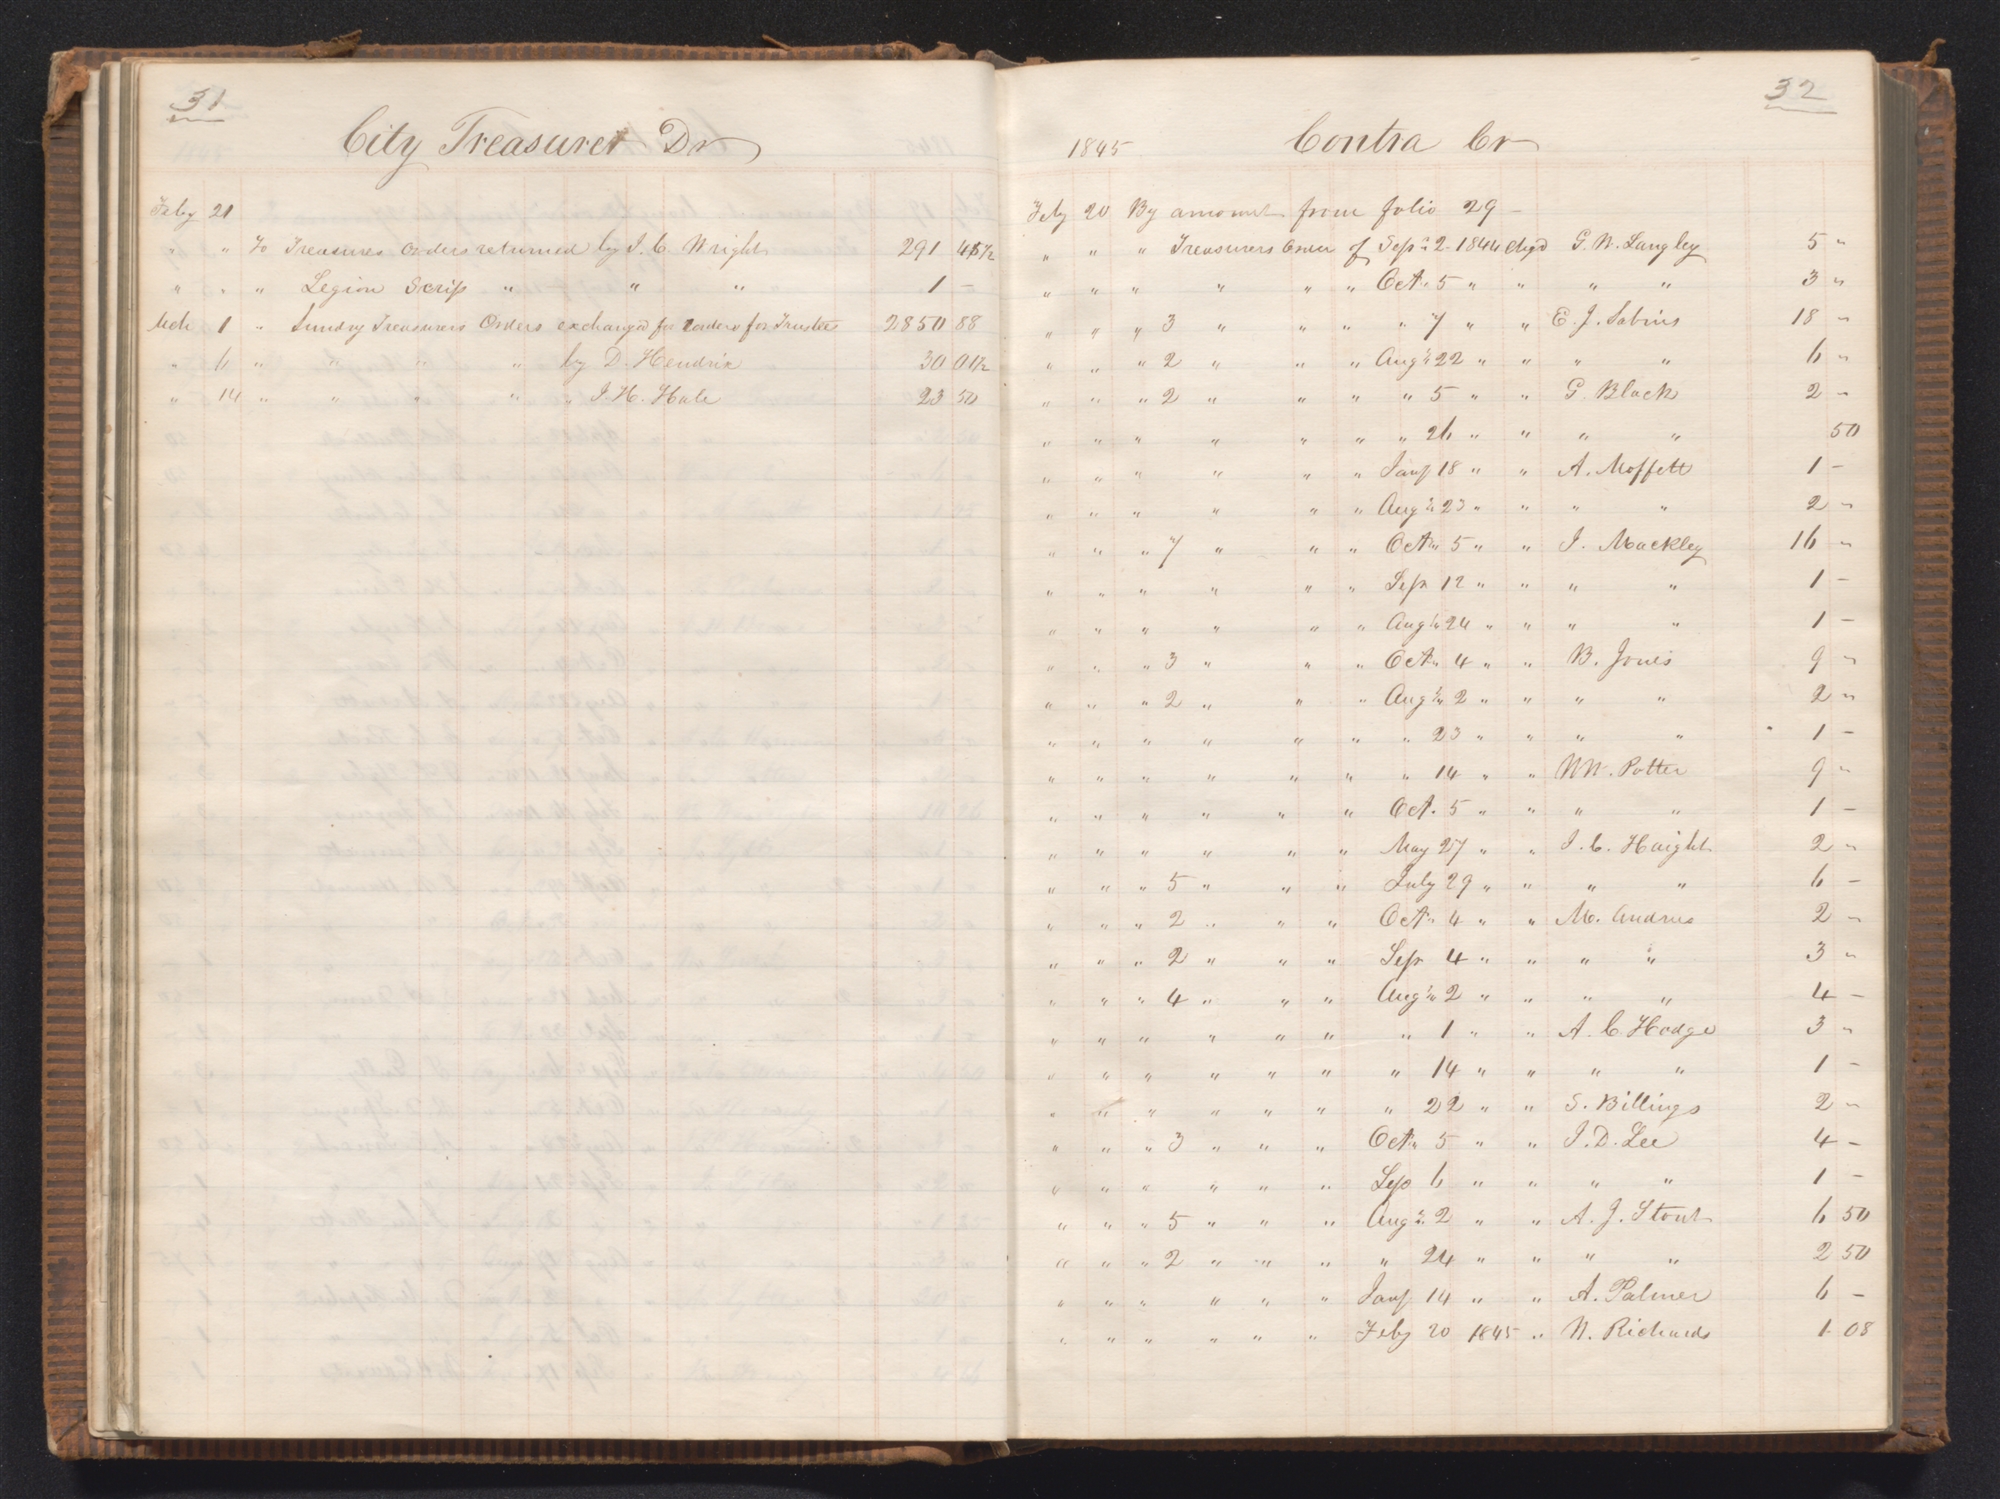 31
City Treasurer Dr
Feby 21
" " To Treasures Orders returned by I. C. Wright 291 41½
" " " Legion Scrip " " " 1 –
Mch 1 " Sundry Treasurers Orders exchangd for orders for Trustee 2850 88
" 6 " " " " by D. Hendrix 30 01½
" 14 " " " " " J. H. Hale 23 50
32
1845 Contra Cr
Feby 20 By amount from folio 29 –
" " " Treasurers Order of Sepr 2 1844 chgd G. W. Langley 5 "
" " " " " " Oct. 5 " " " " 3 "
" " " 3 " " " " 7 " " E. J. Sabins 18 "
" " " 2 " " " Augt 22 " " " " 6 "
" " " 2 " " " " 5 " " G. Black 2 –
" " " " " " " 26 " " " " 50
" " " " " " Jany 18 " " A. Moffett 1 –
" " " " " " Augt 23 " " " " 2 "
" " " 7 " " " Octr 5 " " J. Mackley 16 "
" " " " " " Sepr 12 " " " " 1 –
" " " " " " Augt 24 " " " " 1 –
" " " 3 " " " Octr 4 " " B. Jones 9 "
" " " 2 " " " Augt 2 " " " " 2 "
" " " " " " " 23 " " " " 1 –
" " " " " " " 14 " " Wm. Potter 9 "
" " " " " " Oct. 5 " " " " 1 –
" " " " " " May 27 " " I. C. Haight 2 "
" " " 5 " " " July 29 " " " " 6 –
" " " 2 " " " Octr 4 " " M. Andrus 2 "
" " " 2 " " " Sepr 4 " " " " 3 "
" " " 4 " " " Augt 2 " " " " 4 –
" " " " " " " 1 " " A. C. Hodge 3 "
" " " " " " " 14 " " " " 1 –
" " " " " " " 22 " " S. Billings 2 "
" " " 3 " " " Octr 5 " " J. D. Lee 4 –
" " " " " " Sep 6 " " " " 1 –
" " " 5 " " " Augt 2 " " A. J. Stout 6 50
" " " 2 " " " " 24 " " " " 2 50
" " " " " " Jany 14 " " A. Palmer 6 –
" " " " " " Feby 20 1845 " W. Richards 1 08